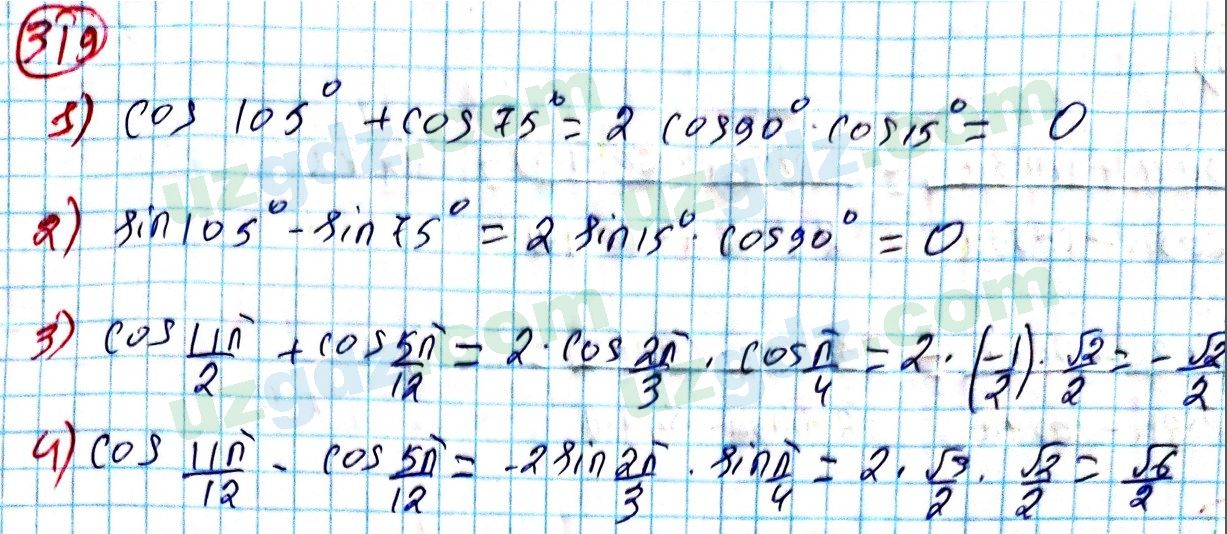 319
1) cos 105° + cos 75° = 2 cos 90° · cos 15° = 0
2) sin 105° - sin 75° = 2 sin 15° · cos 90° = 0
3) cos 11π/2 + cos 5π/12 = 2 · cos 2π/3 · cos π/4 = 2 · (-1/2) · √2/2 = - √2/2
4) cos 11π/12 - cos 5π/12 = -2 sin 2π/3 · sin π/4 = 2 · √3/2 · √2/2 = √6/2
uzgdz.com
uzgdz.com
uzgdz.com
uzgdz.com